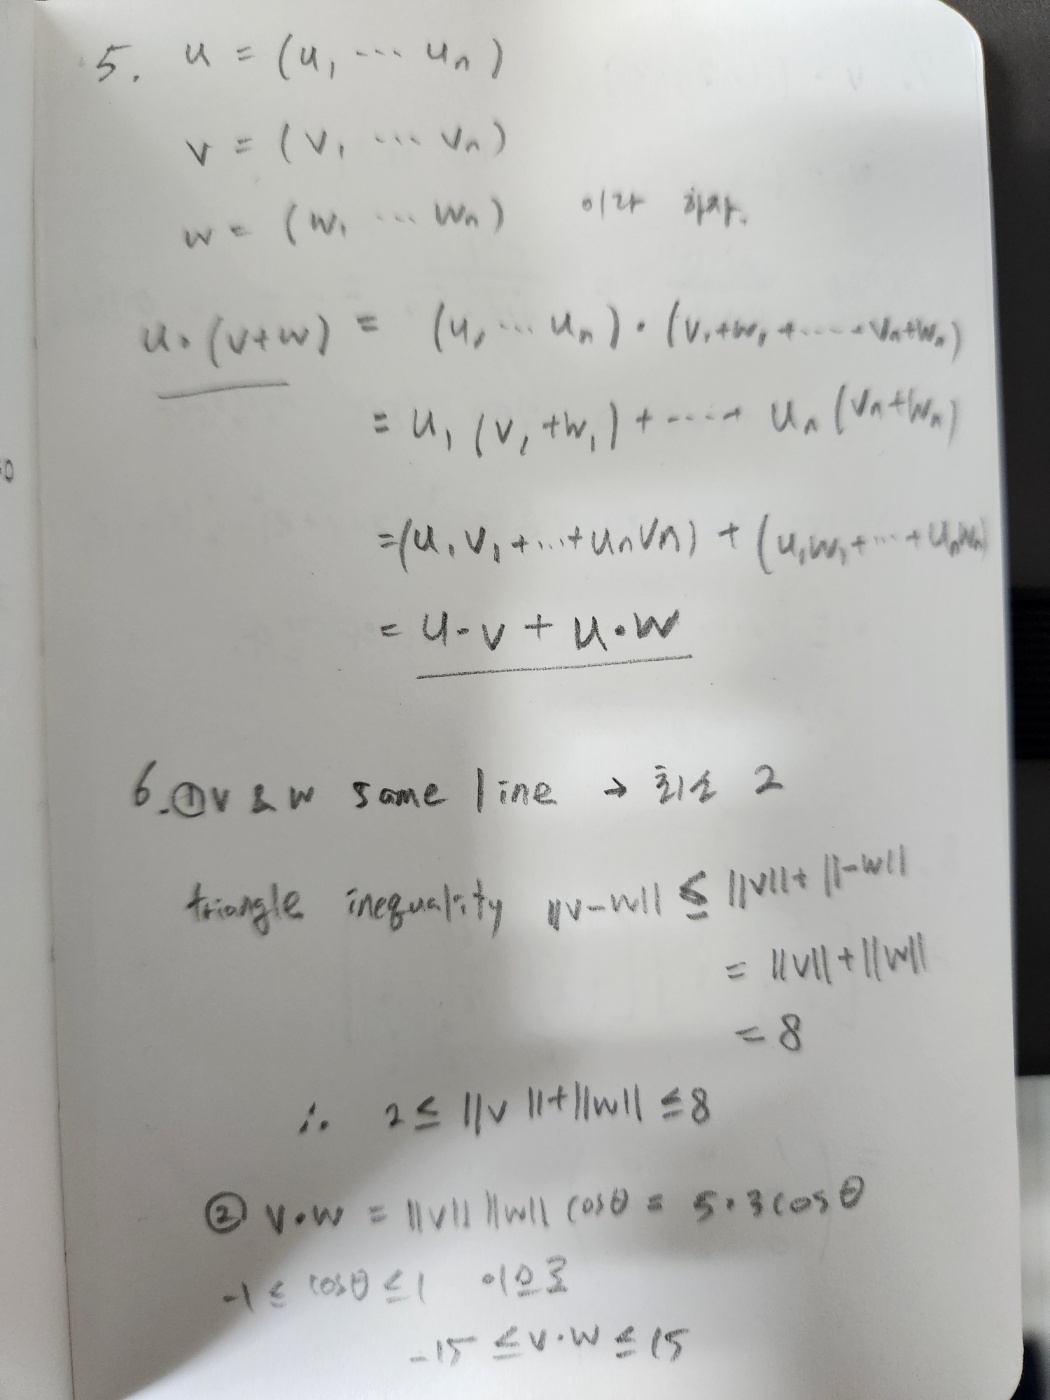 5. u = (u₁ ... uₙ)
v = (v₁ ... vₙ)
w = (w₁ ... wₙ) 이라 하자.
u·(v+w) = (u₁ ... uₙ)·(v₁+w₁+.....+vₙ+wₙ)
= u₁(v₁+w₁)+.....+ uₙ(vₙ+wₙ)
=(u₁v₁+...+uₙvₙ) + (u₁w₁+...+uₙwₙ)
= u·v + u·w
6. ① v & w same line → 최소 2
triangle inequality ||v-w|| ≤ ||v||+||-w||
= ||v||+||w||
= 8
∴ 2 ≤ ||v||+||w|| ≤ 8
② v·w = ||v|| ||w|| cosθ = 5·3cosθ
-1 ≤ cosθ ≤ 1 이므로
-15 ≤ v·w ≤ 15